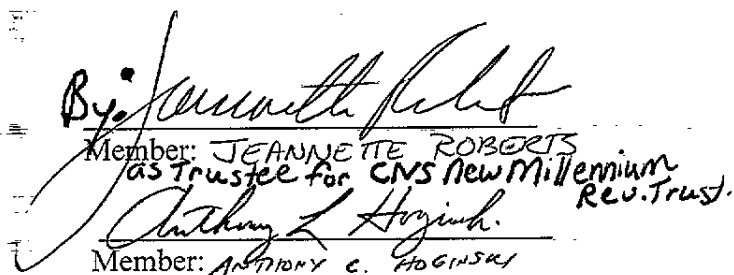 By: Jeannette Roberts
Member: JEANNETTE ROBERTS
as Trustee for CNS New Millennium
Rev. Trust.
Anthony L Hoginsk.
Member: ANTHONY C. HOGINSKI